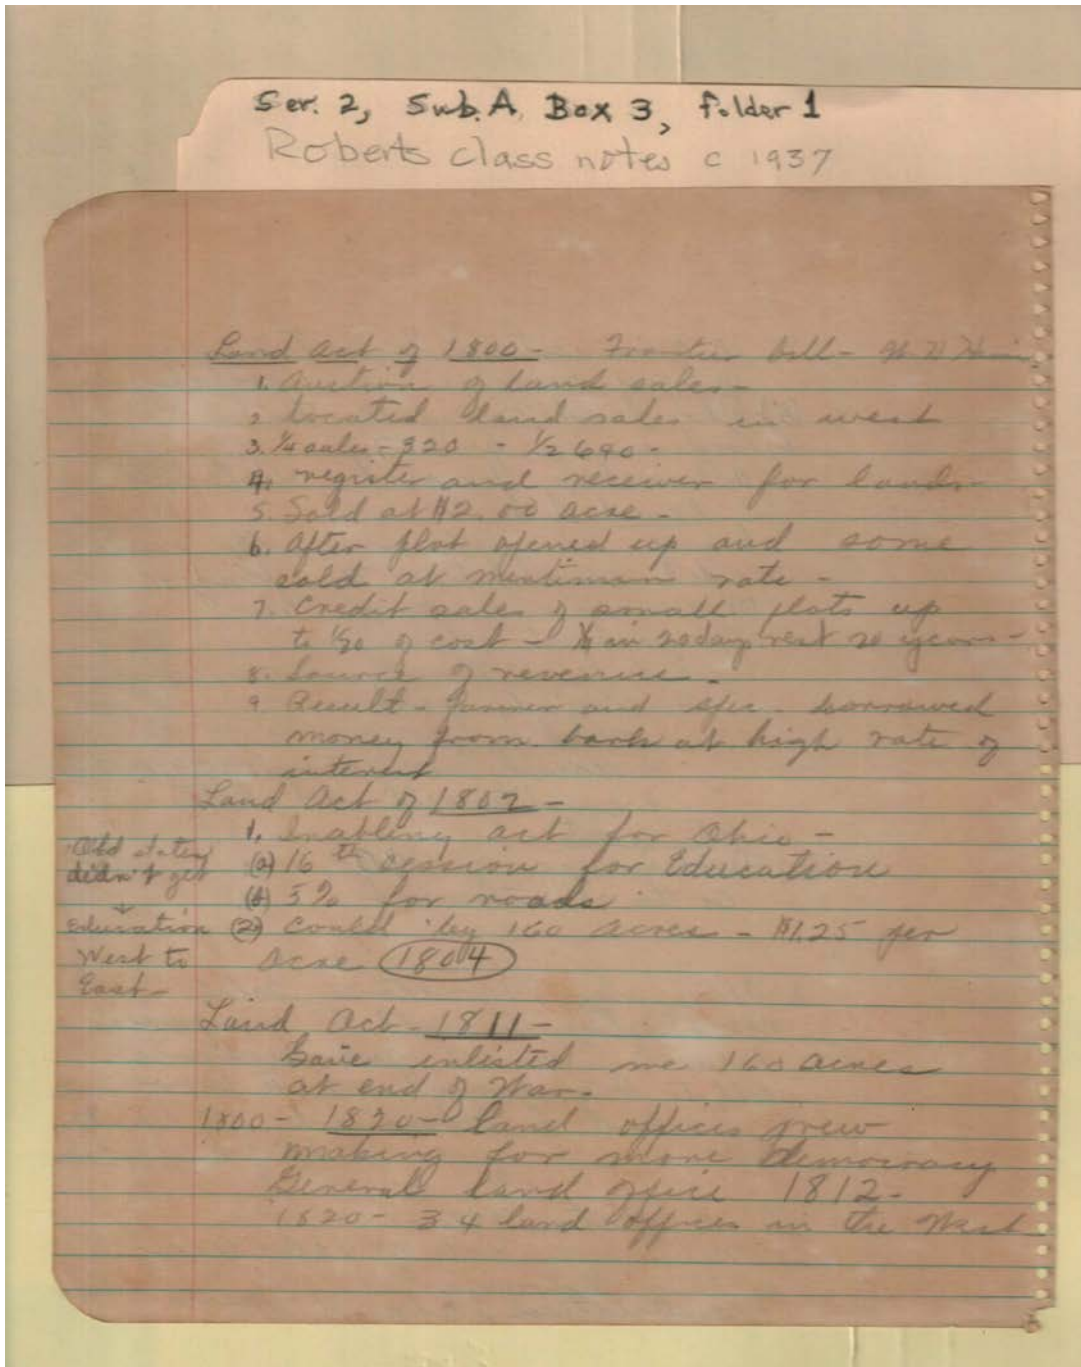 Ser. 2, Sub. A, Box 3, folder 1
Roberts class notes c 1937
Land Act of 1800 - Frontier bill - W H
1. Auction of land sales -
2 Located land sales in west
3. 1/4 sales - 320 - 1/2 640 -
4. register and receiver for lands -
5. Sold at $2.00 acre -
6. After plot opened up and some
sold at rate -
7. Credit sales of small plots up
to 1/20 of cost - in day rest years -
8. Source of revenue -
9 Result - farmer and spec. borrowed
money from bank at high rate of
interest
Land Act of 1802 -
1. Enabling act for Ohio -
(a) 16th session for Education
(b) 5% for roads
(2) Could by 160 acres - $1.25 per
acre 1804
Old states
didn't get
Education
West to
East
Land Act - 1811 -
Gave enlisted me 160 acres
at end of War -
1800 - 1820 - land offices grew
making for more democracy
General land office 1812 -
1820 - 34 land offices in the West